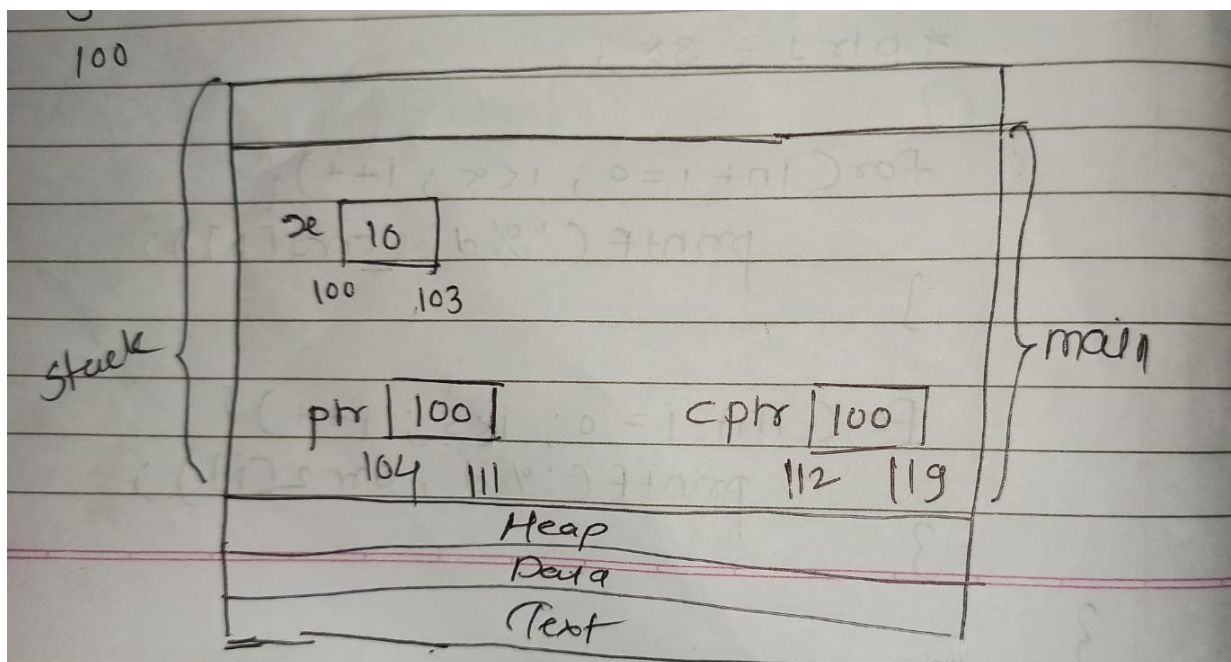 100
x 10
100 103
Stack
main
ptr 100 cptr 100
104 111 112 119
Heap
Data
Text